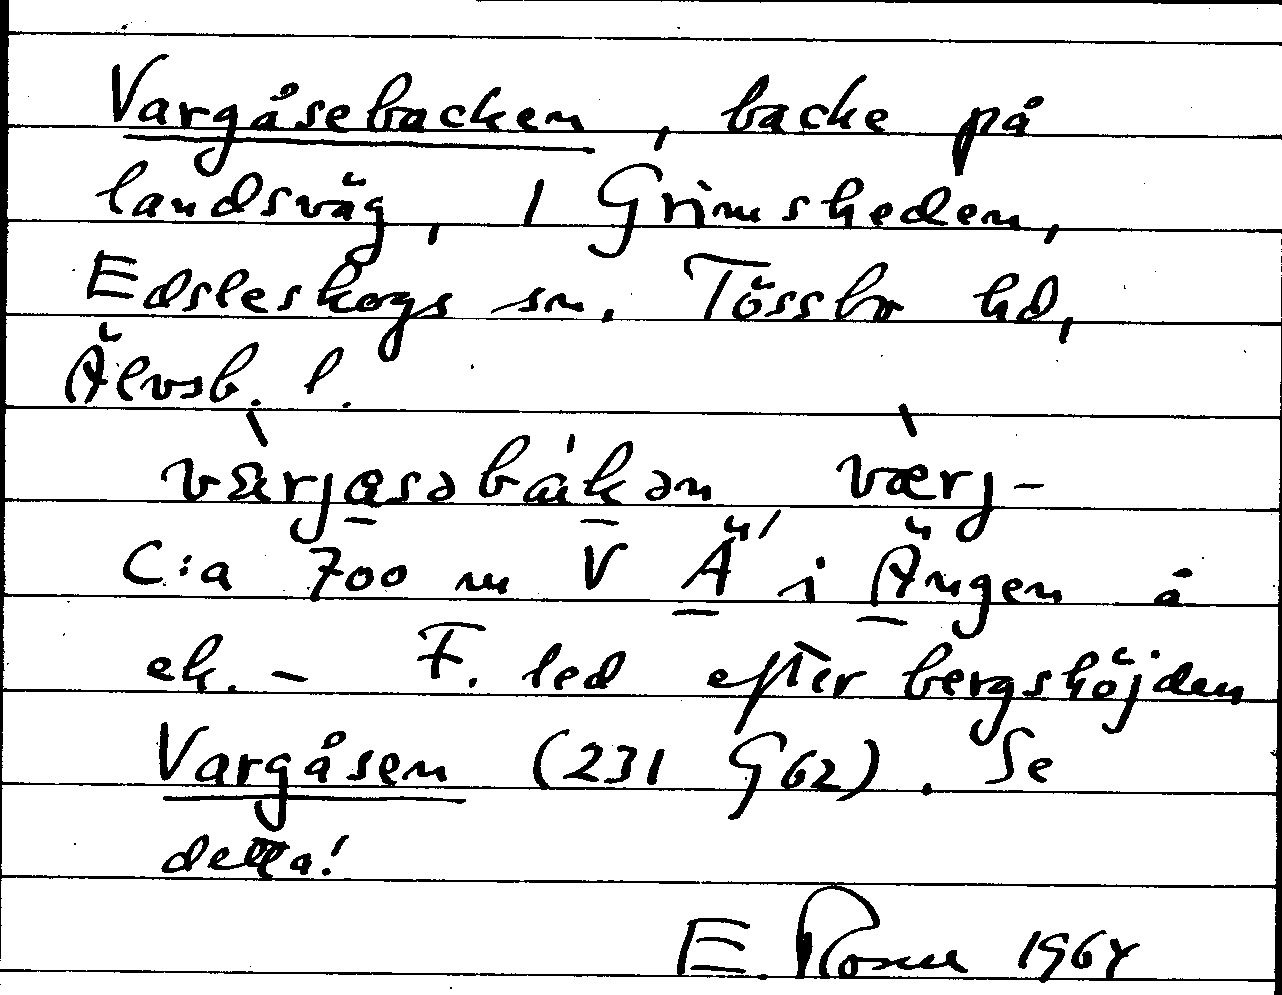 Vargåsebacken, backe på
landsväg, 1 Grimsheden,
Edsleskogs sn. Tössbo hd,
Älvsb. l.
værjasəbakən værj-
C:a 700 m V Ä' i Ängen å
ek. - F. led efter bergshöjden
Vargåsen (231 G62). Se
detta!
E. 1964